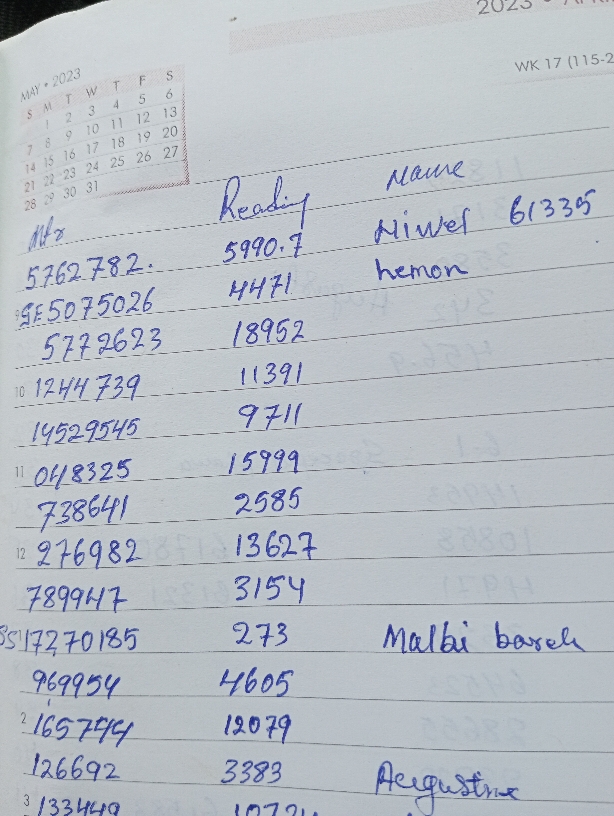 2023
WK 17 (115-2
MAY • 2023
S M T W T F S
1 2 3 4 5 6
7 8 9 10 11 12 13
14 15 16 17 18 19 20
21 22 23 24 25 26 27
28 29 30 31
Mtr Reading Name
5762782. 5990.7 61335
9 SE5075026 4471 hemon
5772623 18952
10 1244739 11391
14529545 9711
11 048325 15999
738641 2585
12 276982 13627
789947 3154
17270185 273 Malbi bareh
969954 4605
2 165744 12079
126692 3383 Augustine
3 133449